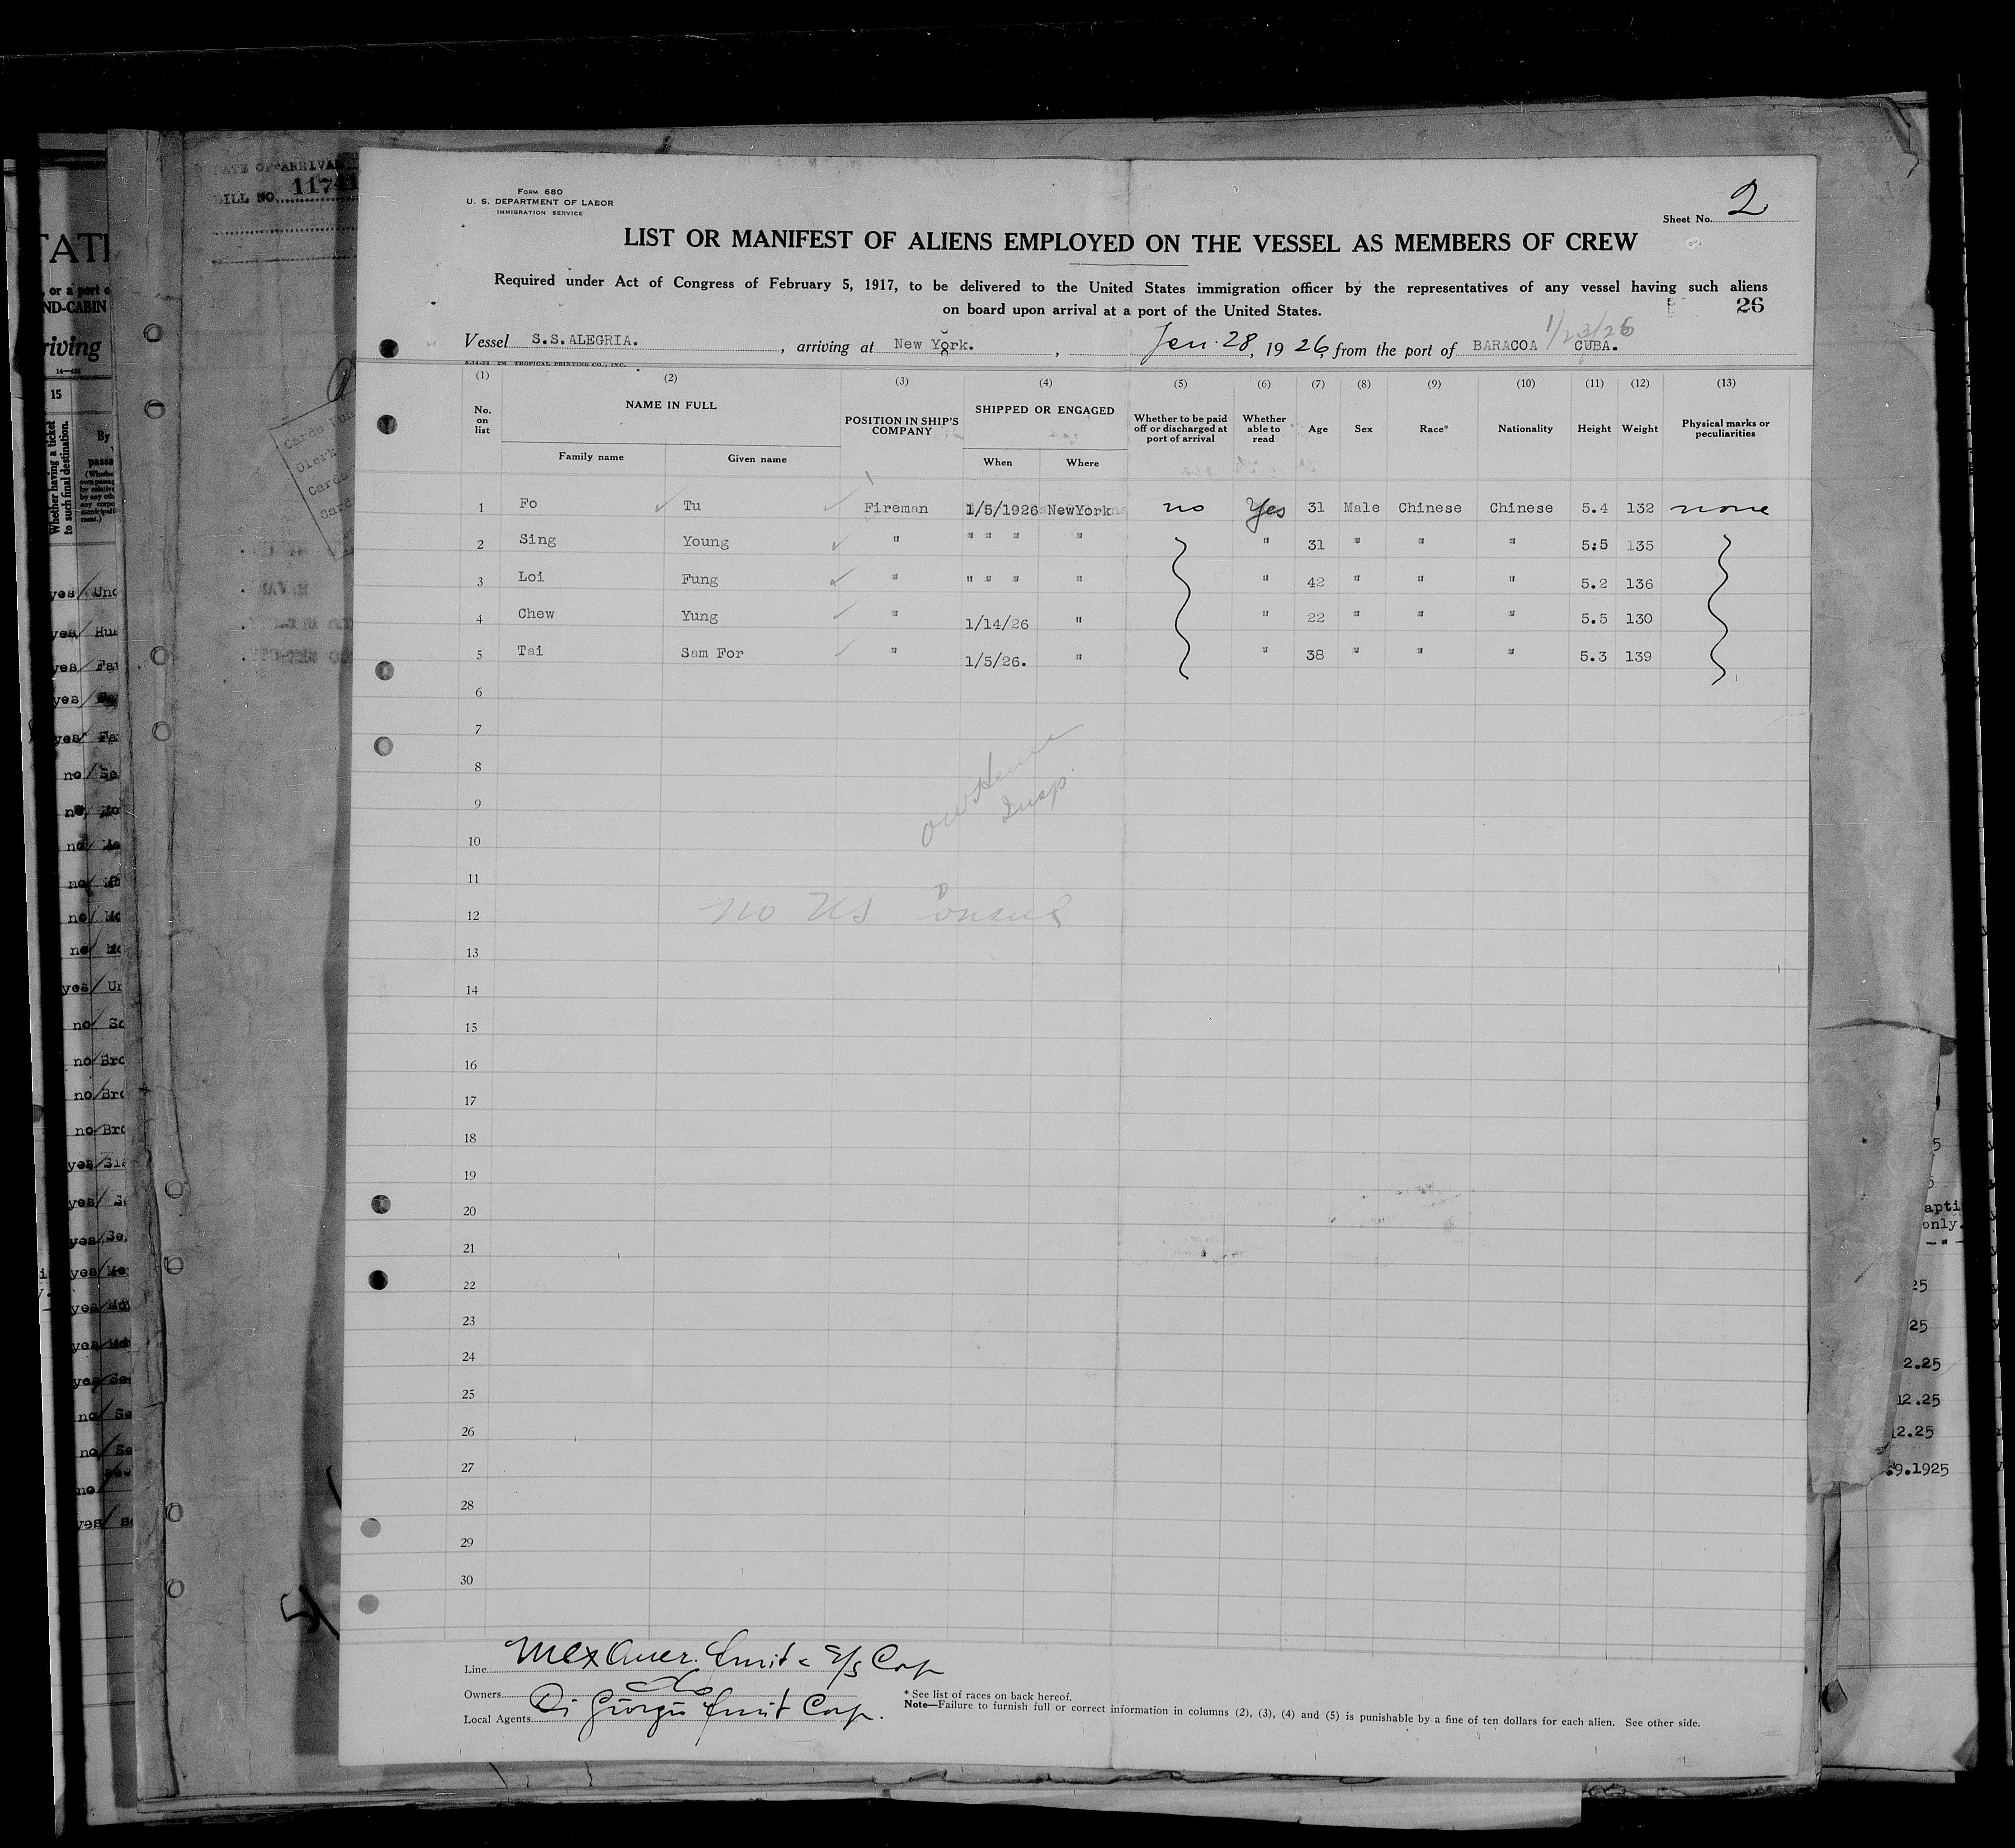 DATE OF ARRIVAL
BILL NO. 11741
Form 680
U. S. DEPARTMENT OF LABOR
IMMIGRATION SERVICE
Sheet No. 2
LIST OR MANIFEST OF ALIENS EMPLOYED ON THE VESSEL AS MEMBERS OF CREW
Required under Act of Congress of February 5, 1917, to be delivered to the United States immigration officer by the representatives of any vessel having such aliens
on board upon arrival at a port of the United States.
26
1/23/26
Vessel S.S.ALEGRIA. , arriving at New York. , Jan. 28, 1926, from the port of BARACOA CUBA.
5-14-24 2M TROPICAL PRINTING CO., INC.
(1) (2) (3) (4) (5) (6) (7) (8) (9) (10) (11) (12) (13)
No. on list NAME IN FULL POSITION IN SHIP'S COMPANY SHIPPED OR ENGAGED Whether to be paid off or discharged at port of arrival Whether able to read Age Sex Race* Nationality Height Weight Physical marks or peculiarities
Family name Given name When Where
1 Fo Tu Fireman 1/5/1926 NewYork no Yes 31 Male Chinese Chinese 5.4 132 none
2 Sing Young " " " " " " 31 " " " 5:5 135
3 Loi Fung " " " " " " 42 " " " 5.2 136
4 Chew Yung " 1/14/26 " " 22 " " " 5.5 130
5 Tai Sam For " 1/5/26. " " 38 " " " 5.3 139
6
7
8
9
Insp.
10
11
12 no US Consul
13
14
15
16
17
18
19
20
21
22
23
24
25
26
27
28
29
30
Line Mex Amer. Fruit & S/S Corp
Owners do
Local Agents Di Giorgio Fruit Corp.
* See list of races on back hereof.
Note—Failure to furnish full or correct information in columns (2), (3), (4) and (5) is punishable by a fine of ten dollars for each alien. See other side.